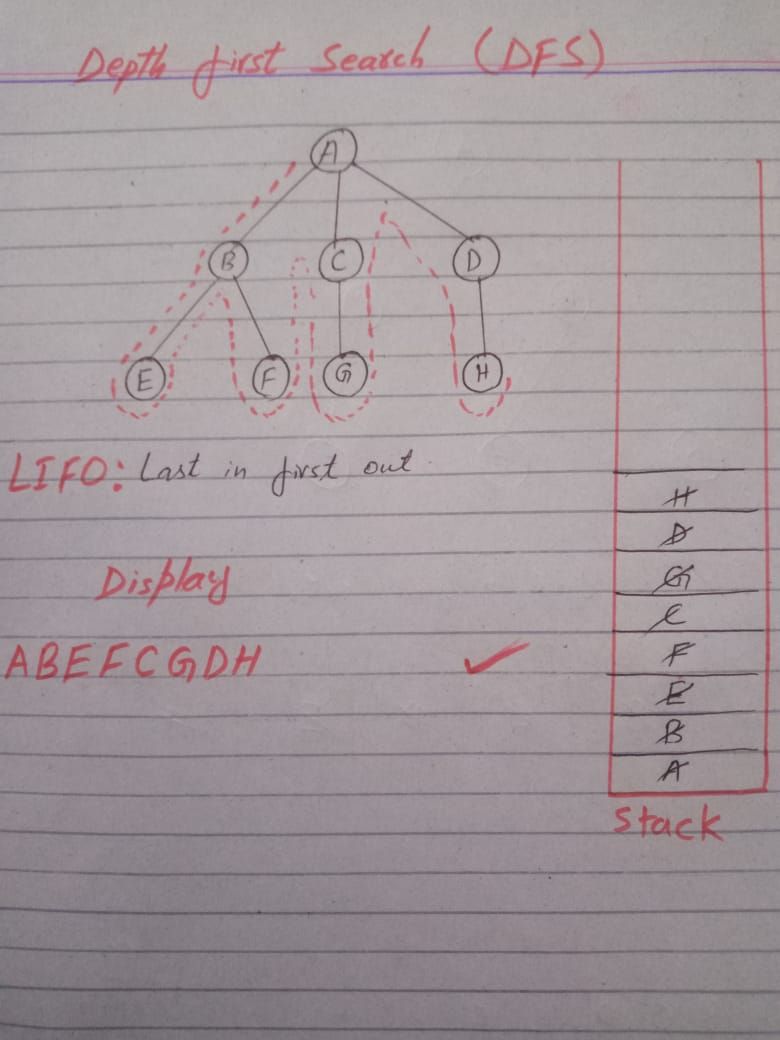 Depth first Search (DFS)
A
B C D
E F G H
LIFO: Last in first out.
Display
ABEFCGDH
H
D
G
C
F
E
B
A
Stack